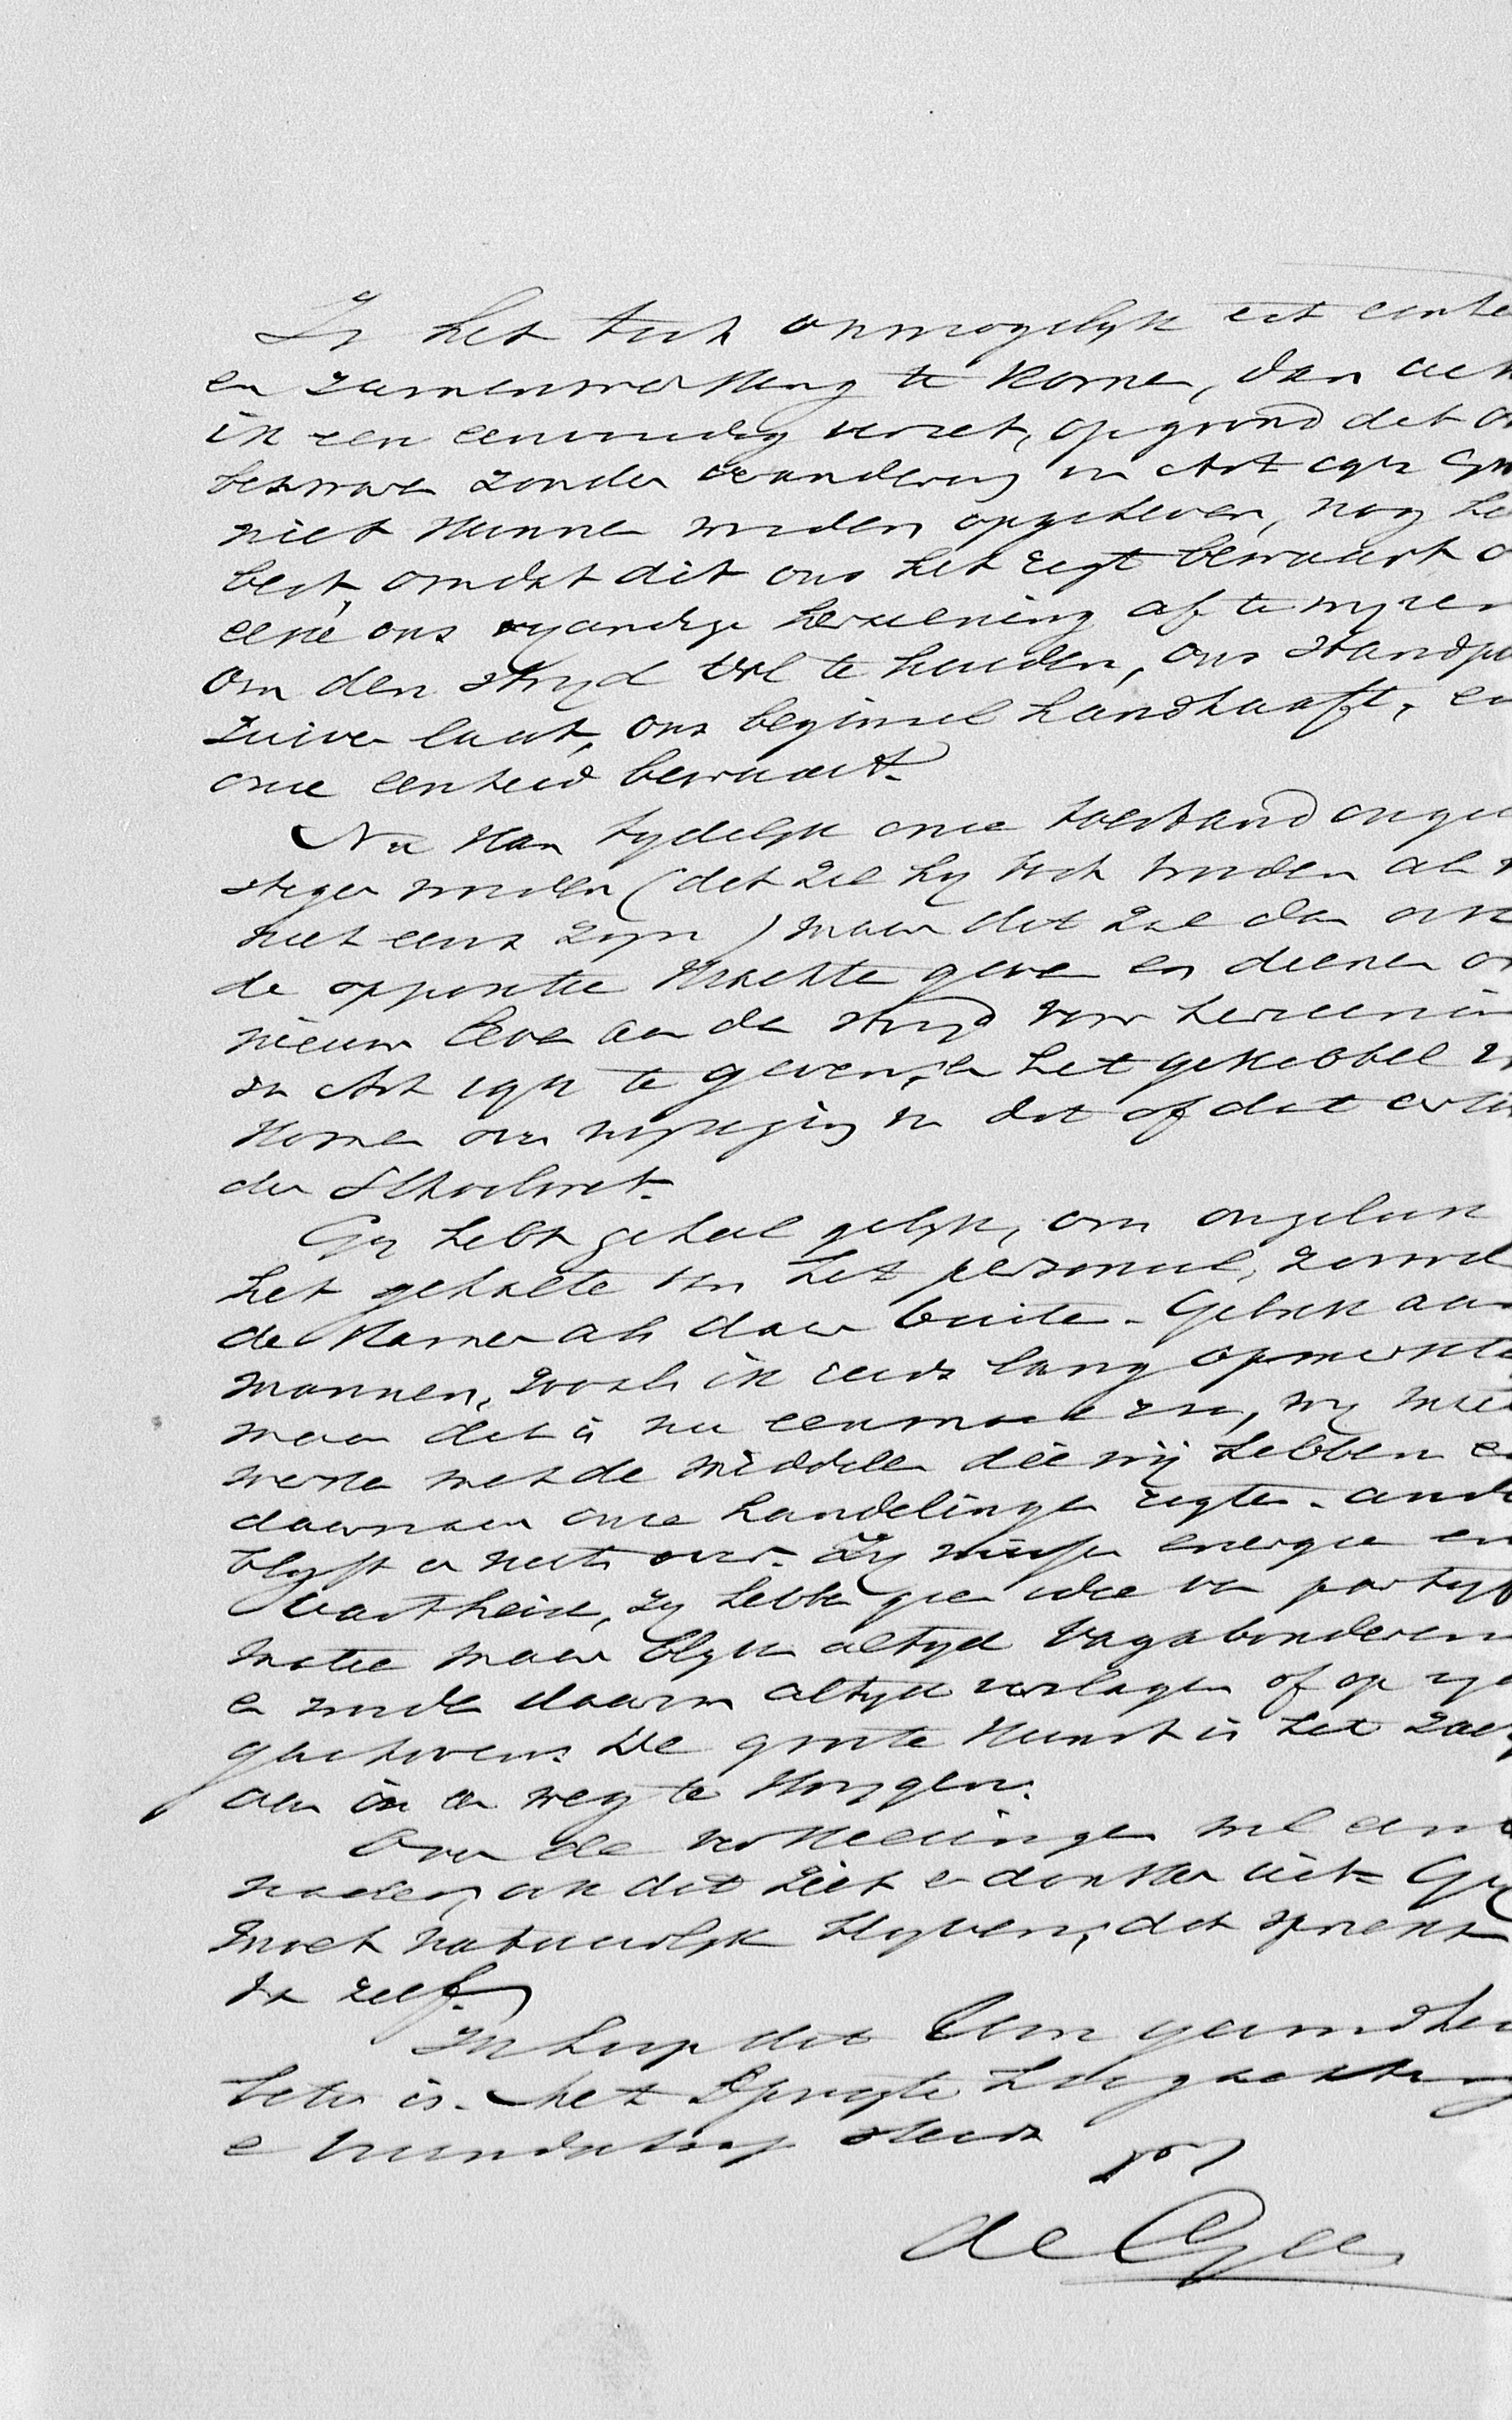 Is het toch onmogelijk tot eenhe
en zamenwerking te komen, dan acht
ik een eenvoudig verzet, op grond dat on
bezwaren zonder verandering in Art 194 Gw
niet kunnen worden opgeheven, nog he
best, omdat dit ons het regt bewaart o
eene ons vyandige herziening af te wyzen
om den stryd vol te houden, ons standpu
zuiver laat, ons beginsel handhaaft, en
onze eenheid bewaart.
Nu kan tydelyk onze toestand ongun
stiger worden (dat zal hy toch worden als w
niet eens zyn) maar dit zal dan aan
de oppositie krachten geven en dienen om
nieuw leven aan de stryd voor herziening
van Art 194 te geven, en het gekibbel v
komen over wyziging van dit of dat artik
der Schoolwet.
Gy hebt geheel gelyk, om ongeluk
het gehalte van het personeel, zoowel
de Kamer als daar buiten. Gebrek aan
mannen, zooals ik reeds lang opmerkte
maar dat is nu eenmaal zoo, wy moe
werken met de middelen die wij hebben en
daarnaar onze handelingen regten. ande
blyft er niets over. Zy missen energie en
vastheid, zy hebben geen idee van partyfo
matie maar blyven altyd vagabonderen
en worden daarom altyd verslagen of op zy
geschoven. De groote kunst is het zaa
aan in en weg te krygen.
Over de verkiezingen wel een
nader, ook dat ziet er donker uit. Gy
moet natuurlyk blyven, dat spreekt
van zelf.
Ik hoop dat Uw gezondhe
beter is. Met opregte hoogachting
en vriendschap steeds
de Geer